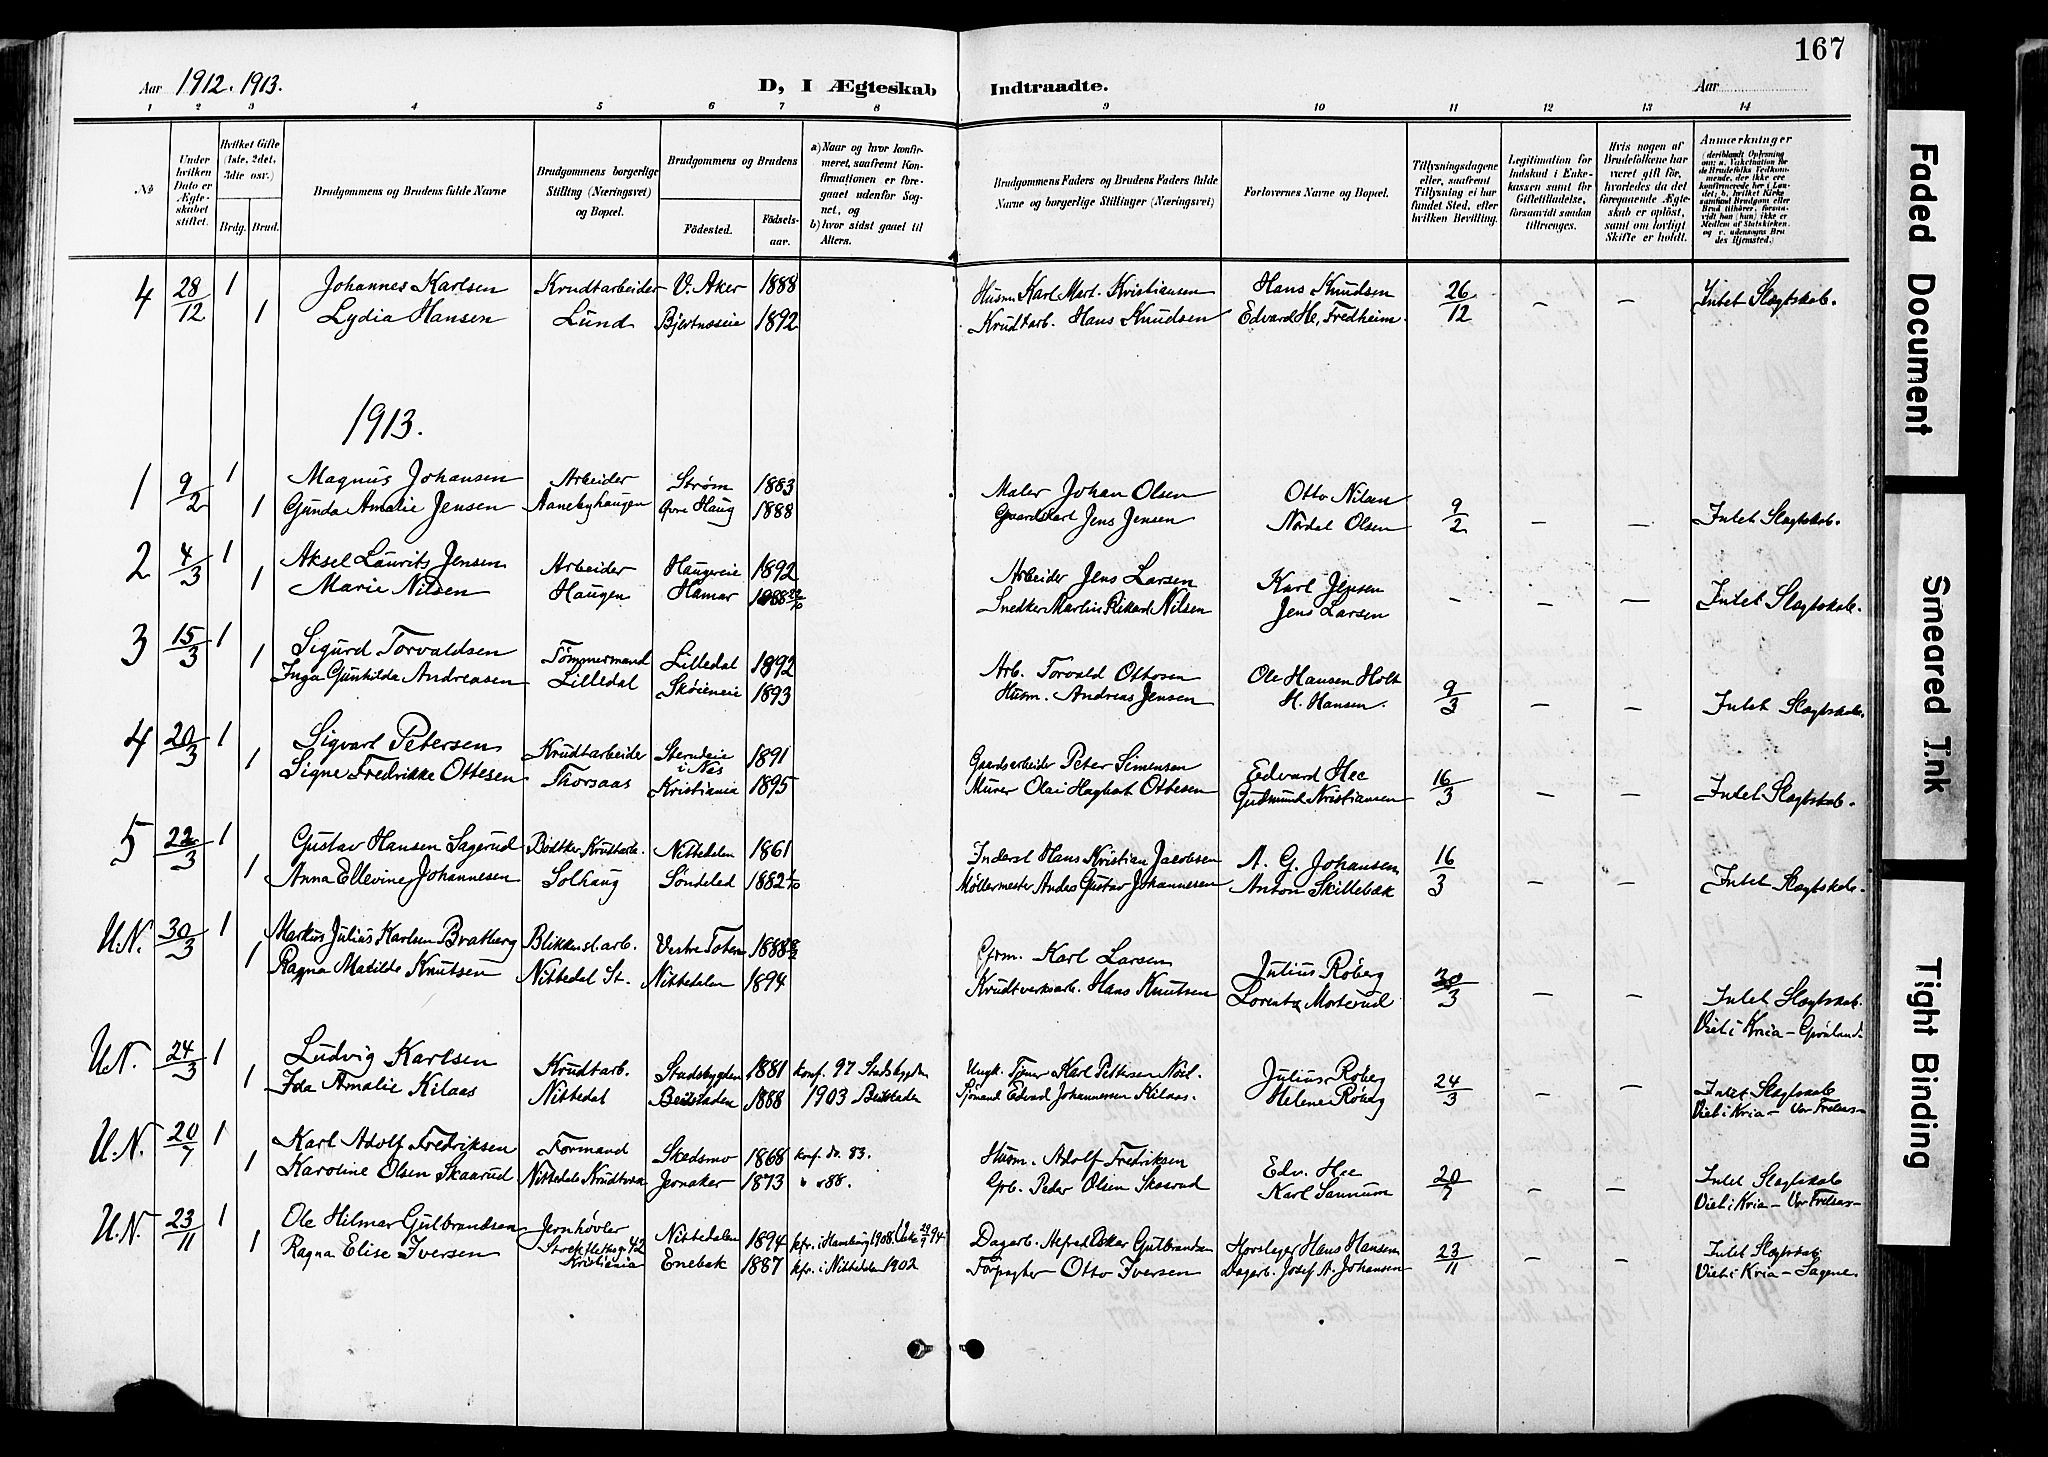 167
Aar 1912. 1913.
D, I Ægteskab Indtraadte.
Aar
1 2 3 4 5 6 7 8 9 10 11 12 13 14
No
Under hvilken Dato er Ægteskabet stiftet.
Hvilket Gifte (1ste, 2det, 3die osv.)
Brdg. Brud.
Brudgommens og Brudens fulde Navne
Brudgommens borgerlige Stilling (Næringsvei) og Bopæl.
Brudgommens og Brudens
Födested. Födselsaar.
a) Naar og hvor konfirmeret, saafremt Konfirmationen er foregaaet udenfor Sognet, og
b) hvor sidst gaaet til Alters.
Brudgommens Faders og Brudens Faders fulde Navne og borgerlige Stillinger (Næringsvei)
Forlovernes Navne og Bopæl.
Tillysningsdagene eller, saafremt Tillysning ei har fundet Sted, efter hvilken Bevilling.
Legitimation for Indskud i Enkekassen samt for Giftetilladelse, forsaavidt saadan tiltrænges.
Hvis nogen af Brudefolkene har været gift för, hvorledes da det foregaaende Ægteskab er oplöst, samt om lovligt Skifte er holdt.
Anmærkninger
4 28/12 1 Johannes Karlsen Krudtarbeider V. Aker 1888 Husm. Karl Mart. Kristiansen Hans Knudsen 26/12 – – Intet Slægtskab.
1 Lydia Hansen Lund Bjertnæseie 1892 Krudtarb. Hans Knudsen Edvard He, Fredheim.
1913.
1 9/2 1 Magnus Johansen Arbeider Strøm 1883 Maler Johan Olsen Otto Nilsen 9/2 – – Intet Slægtskab.
1 Gunda Amalie Jensen Aanebyhaugen Øvre Haug 1888 Gaardskarl Jens Jensen Nordal Olsen
2 4/3 1 Aksel Laurits Jensen Arbeider Haugereie 1892 Arbeider Jens Larsen Karl Jensen – – – Intet Slægtskab.
1 Marie Nilsen Haugen Hamar 1888 22/10 Snedker Martin Rikard Nilsen Jens Larsen
3 15/3 1 Sigurd Torvaldsen Tømmermand Lilledal 1892 Arb. Torvald Ottosen Ole Hansen Holt 9/3 – – Intet Slægtskab.
1 Inga Gunhilda Andreasen Lilledal Skøieneie 1893 Husm. Andreas Jensen H. Hansen.
4 20/3 1 Sigvart Petersen Krudtarbeider i Nes 1891 Gaardsarbeider Peter Simensen Edvard Hee 16/3 – – Intet Slægtskab.
1 Signe Fredrikke Ottesen Thorsaas Kristiania 1895 Murer Olai Hagbart Ottesen Gudmund Kristiansen
5 22/3 1 Gustav Hansen Sagerud Bødtker Krudtarb. Nittedalen 1861 Inderst Hans Kristian Jacobsen A. G. Johansen 16/3 – – Intet Slægtskab.
1 Anna Ellevine Johannesen Solhaug Søndeled 1882 Møllermester Andas Gustav Johannesen Anton Skillebæk
U.N. 30/3 1 Markus Julius Karlsen Bratberg Blikkensl. arb. Vestre Toten 1888 Grm. Karl Larsen Julius Røberg 30/3 – – Intet Slægtskab.
1 Ragna Matilde Knutsen Nittedal St. Nittedalen 1894 Krudtverksarb. Hans Knutsen Lorentz Morterud Viet i Kria – Grønland.
U.N. 24/3 1 Ludvig Karlsen Krudtarb. Stadsbygden 1881 konf. 97 Stadsbygden Ungk. Tjener Karl Pettersen Julius Røberg 24/3 – – Intet Slægtskab
1 Ida Amalie Kilaas Nittedal Beitstaden 1888 1903 Beitstaden Sjømand Edvard Johannessen Kilaas. Helene Røberg Viet i Kria – Vor Frelsers –
U.N. 20/7 1 Karl Adolf Fredriksen Formand Skedsmo 1868 konf. do. 83. Husm. Adolf Fredriksen Edv. Hee 20/7 – – Intet Slægtskab
1 Karoline Olsen Skaarud Nittedals Krudtværk Jevnaker 1873 " " 88. Grb. Peder Olsen Skaarud Karl Sannum Viet i Kria – Vor Frelsers –
U.N. 23/11 1 Ole Hilmar Gulbrandsen Jernhøvler Nittedalen 1894 kfr. i Hamburg 1908. Dagarb. Alfred Oskar Gulbrandsen Hans Hansen 23/11 – – Intet Slægtskab
1 Ragna Elise Iversen Stockfletsg. 42 Kristiania Enebak 1887 kfr. i Nittedalen 1902 Forpagter Otto Iversen Dagarb. Josef A. Johansen Viet i Kria – Sagene.
Faded Document
Smeared Ink
Tight Binding